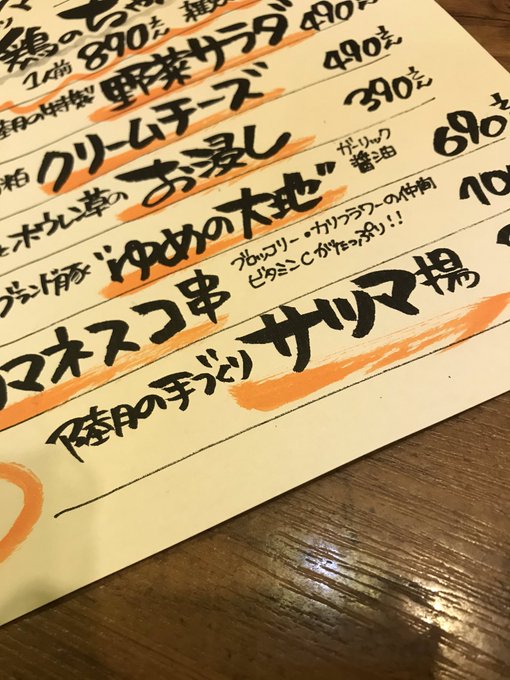 鶏のちゃ
1人前 890えん 雑
特製 野菜サラダ 490えん
粕 クリームチーズ 490えん
ホウレン草の お浸し 390えん
ブランド豚 "ゆめの大地" ガーリック醤油 690えん
マネスコ串 ブロッコリー・カリフラワーの仲間 ビタミンCがたっぷり!! 10
陸月の手づくり サツマ揚